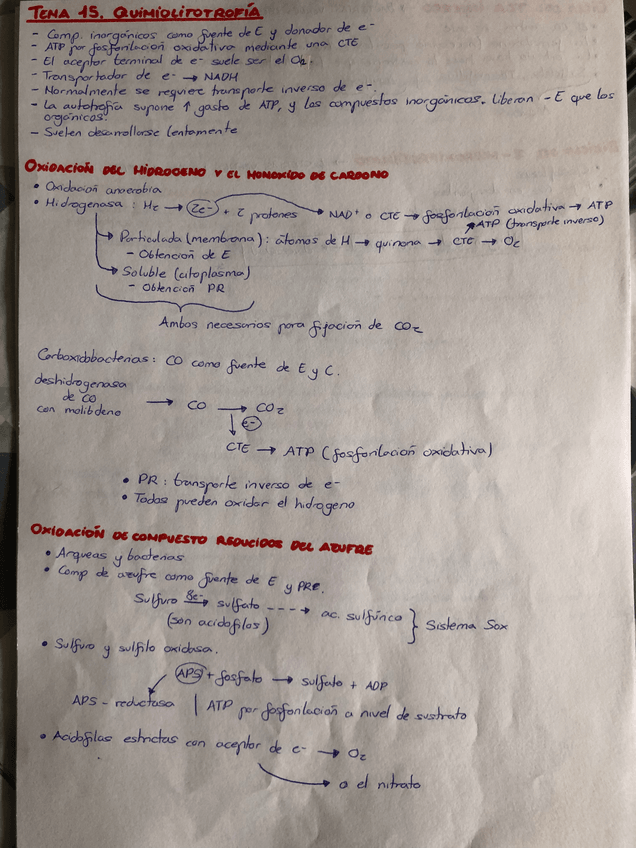 TEMA 15. QUIMIOLITOTROFÍA
- Comp. inorgánicos como fuente de E y donador de e-
- ATP por fosforilación oxidativa mediante una CTE
- El aceptor terminal de e- suele ser el O2.
- Transportador de e- → NADH
- Normalmente se requiere transporte inverso de e-.
- La autotrofía supone ↑ gasto de ATP, y los compuestos inorgánicos. liberan - E que los
orgánicos.
- Suelen desarrollarse lentamente
OXIDACIÓN DEL HIDRÓGENO Y EL MONÓXIDO DE CARBONO
• Oxidación anaerobia
• Hidrogenasa: H2 → 2e- + 2 protones → NAD+ o CTE → fosforilación oxidativa → ATP
ATP (transporte inverso)
→ Particulada (membrana): átomos de H → quinona → CTE → O2
- Obtención de E
→ Soluble (citoplasma)
- Obtención PR
Ambos necesarios para fijación de CO2
Carboxidobacterias: CO como fuente de E y C.
deshidrogenasa
de CO
con molibdeno → CO → CO2
e-
CTE → ATP (fosforilación oxidativa)
• PR: transporte inverso de e-
• Todas pueden oxidar el hidrógeno
OXIDACIÓN DE COMPUESTO REDUCIDOS DEL AZUFRE
• Arqueas y bacterias
• Comp de azufre como fuente de E y PRE.
Sulfuro 8e-→ sulfato ---→ ac. sulfúrico } Sistema Sox
(son acidófilos)
• Sulfuro y sulfito oxidasa.
APS + fosfato → sulfato + ADP
APS - reductasa | ATP por fosforilación a nivel de sustrato
• Acidófilas estrictas con aceptor de e- → O2
→ o el nitrato